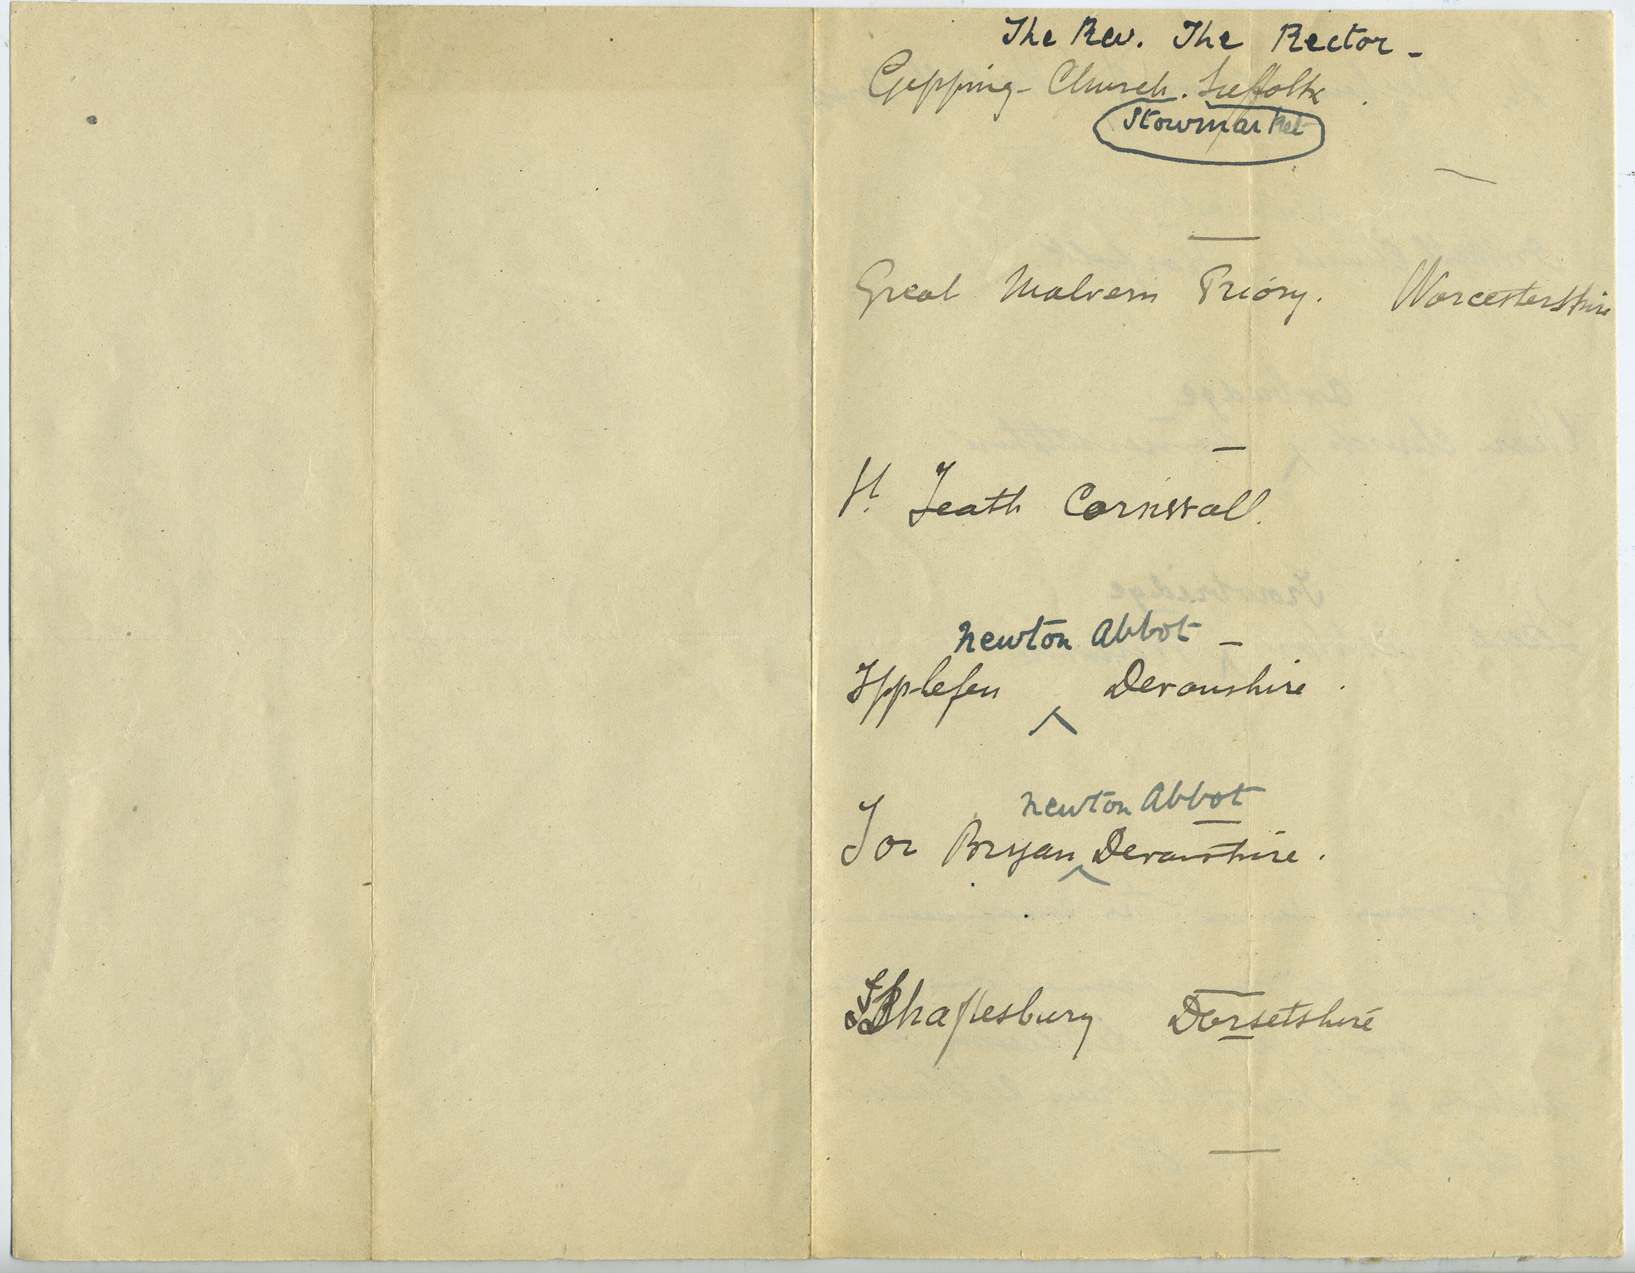 The Rev. The Rector -
Gipping - Church. Suffolk.
Stowmarket
Great Malvern Priory. Worcestershire
St. Teath Cornwall.
Newton Abbot -
Ipplefen Devonshire.
Newton Abbot
Tor Bryan Devonshire.
Shaftesbury Dorsetshire